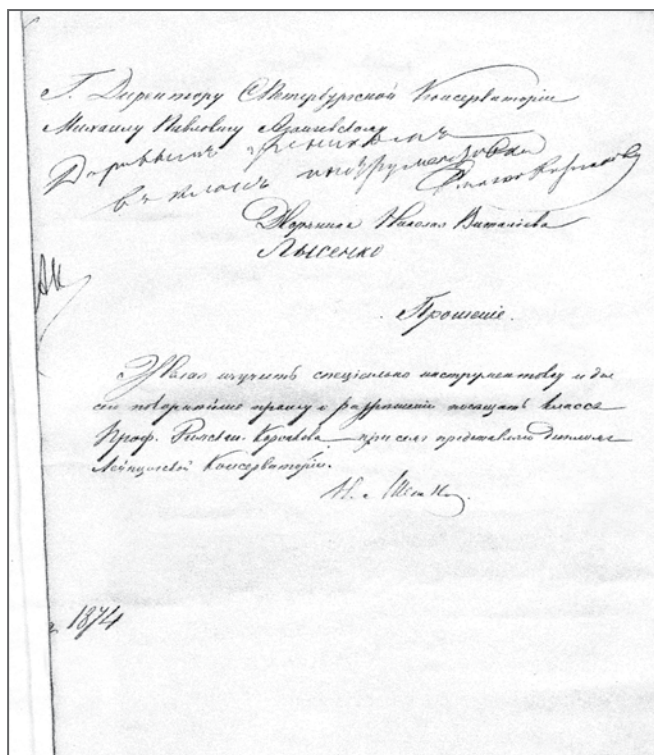 Г. Директору СПетербургской Консерваторіи
Михаилу Павловичу Азанчевскому
Даровымъ ученикомъ
въ классъ инструментовки
Римскаго-Корсакова
Дворянина Николая Виталіева
Лысенко
Прошеніе.
Желая изучить спеціально инструментовку и
покорнѣйше прошу о разрѣшеніи посѣщать классъ
Проф. Римскаго Корсакова при семъ представляю дипломъ
Лейпцигской Консерваторіи.
1874